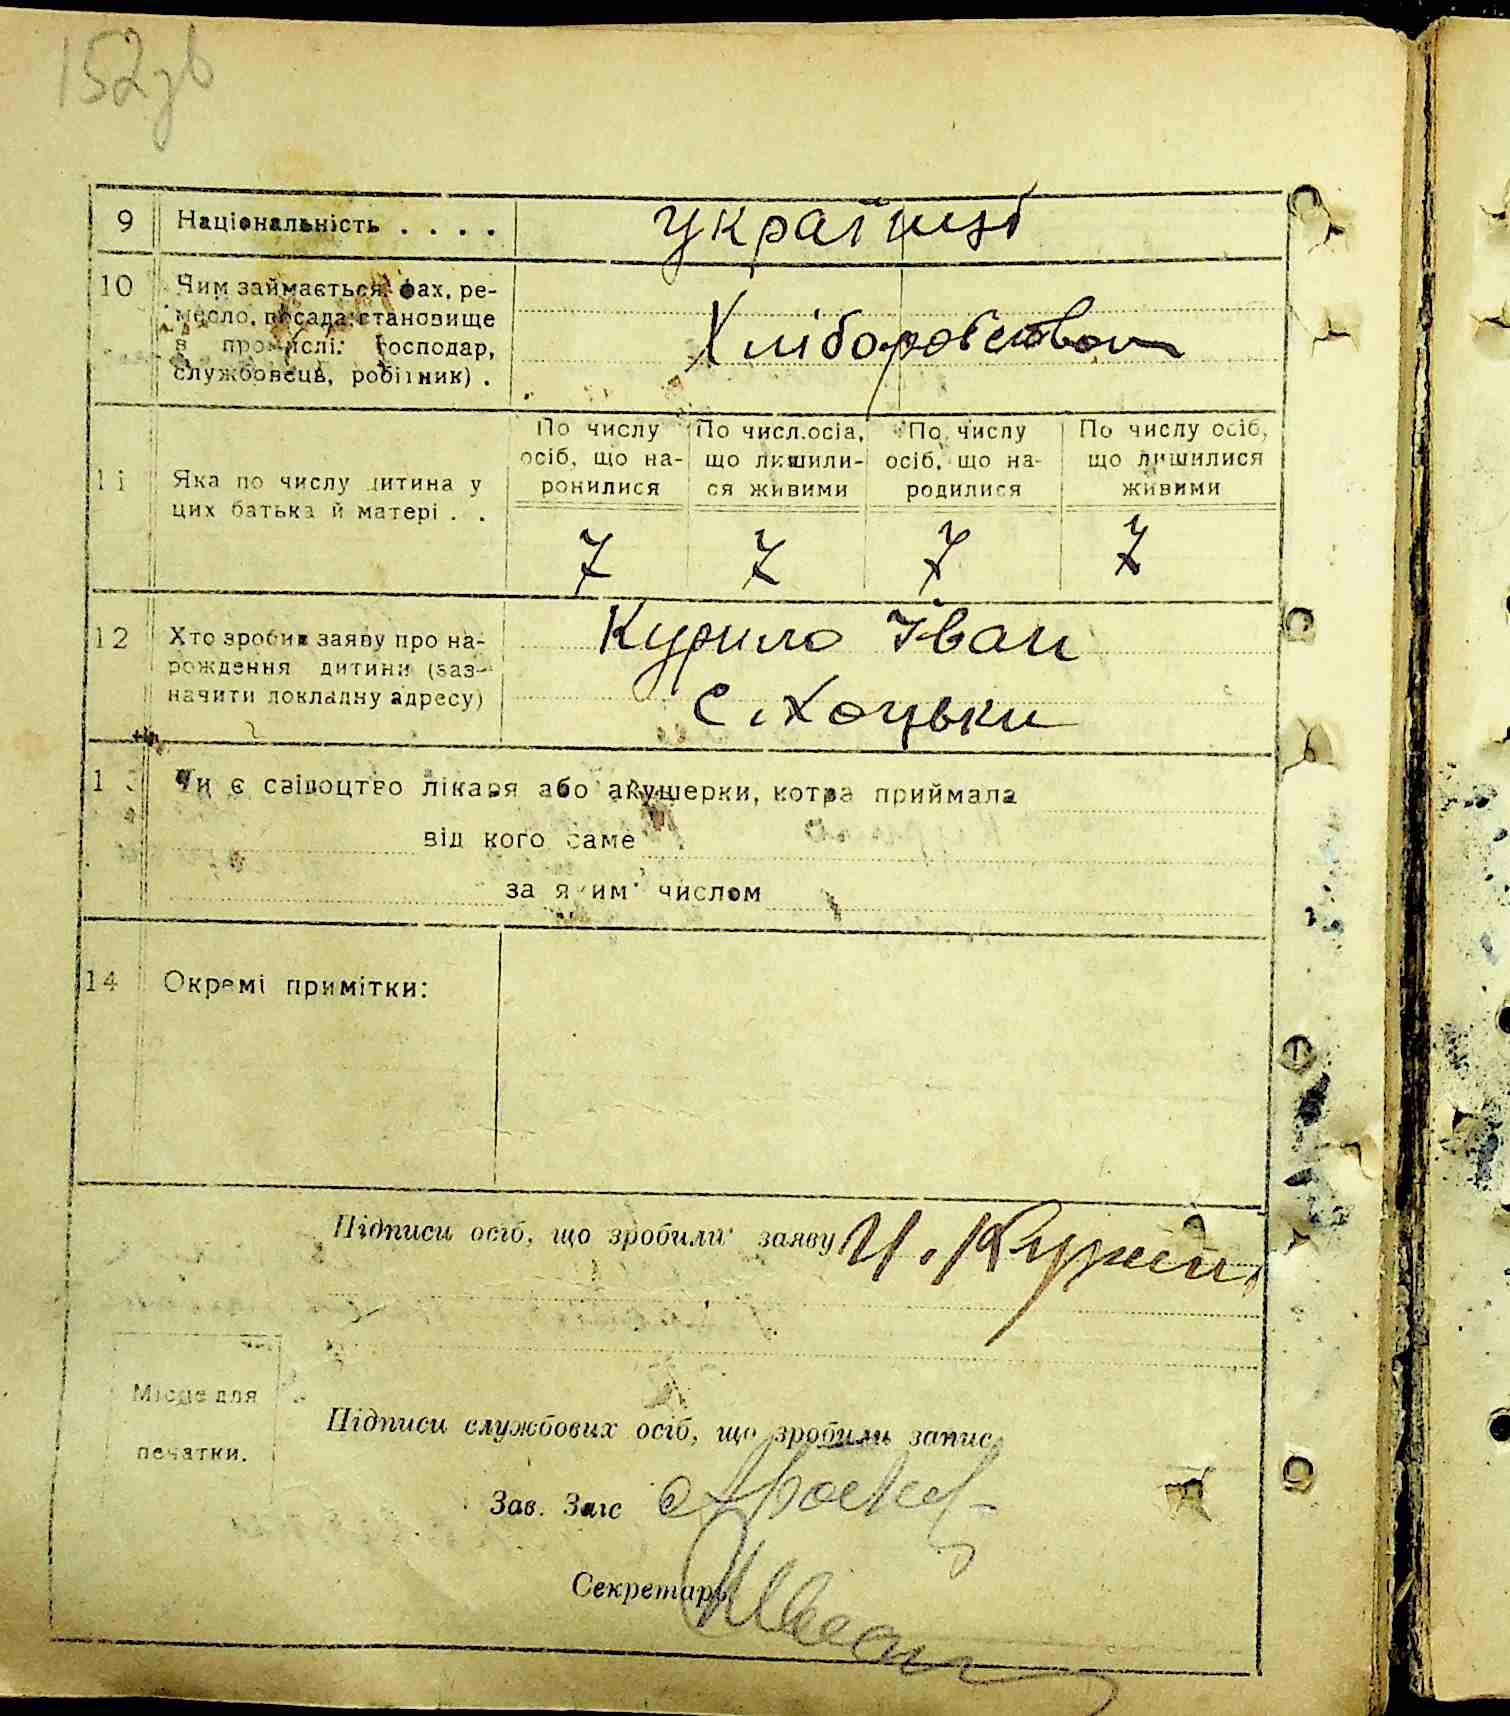 152зв
9 Національність . . . . українці
10 Чим займається фах, ре-
месло, посада, становище
в промислі: господар,
службовець, робітник) .
Хліборобством
По числу По числ.осіа, По числу По числу осіб,
осіб, що на- що лишили- осіб, що на- що лишилися
ронилися ся живими родилися живими
11 Яка по числу дитина у
цих батька й матері . .
7 7 7 7
12 Хто зробив заяву про на-
рождення дитини (заз-
начити докладну адресу)
Курило Іван
с. Хоцьки
13 Чи є свідоцтво лікаря або акушерки, котра приймала
від кого саме
за яким числом
14 Окремі примітки:
Підписи осіб, що зробили заяву И. Курил
Місце для
печатки.
Підписи службових осіб, що зробили запис
Зав. Загс
Секретарь